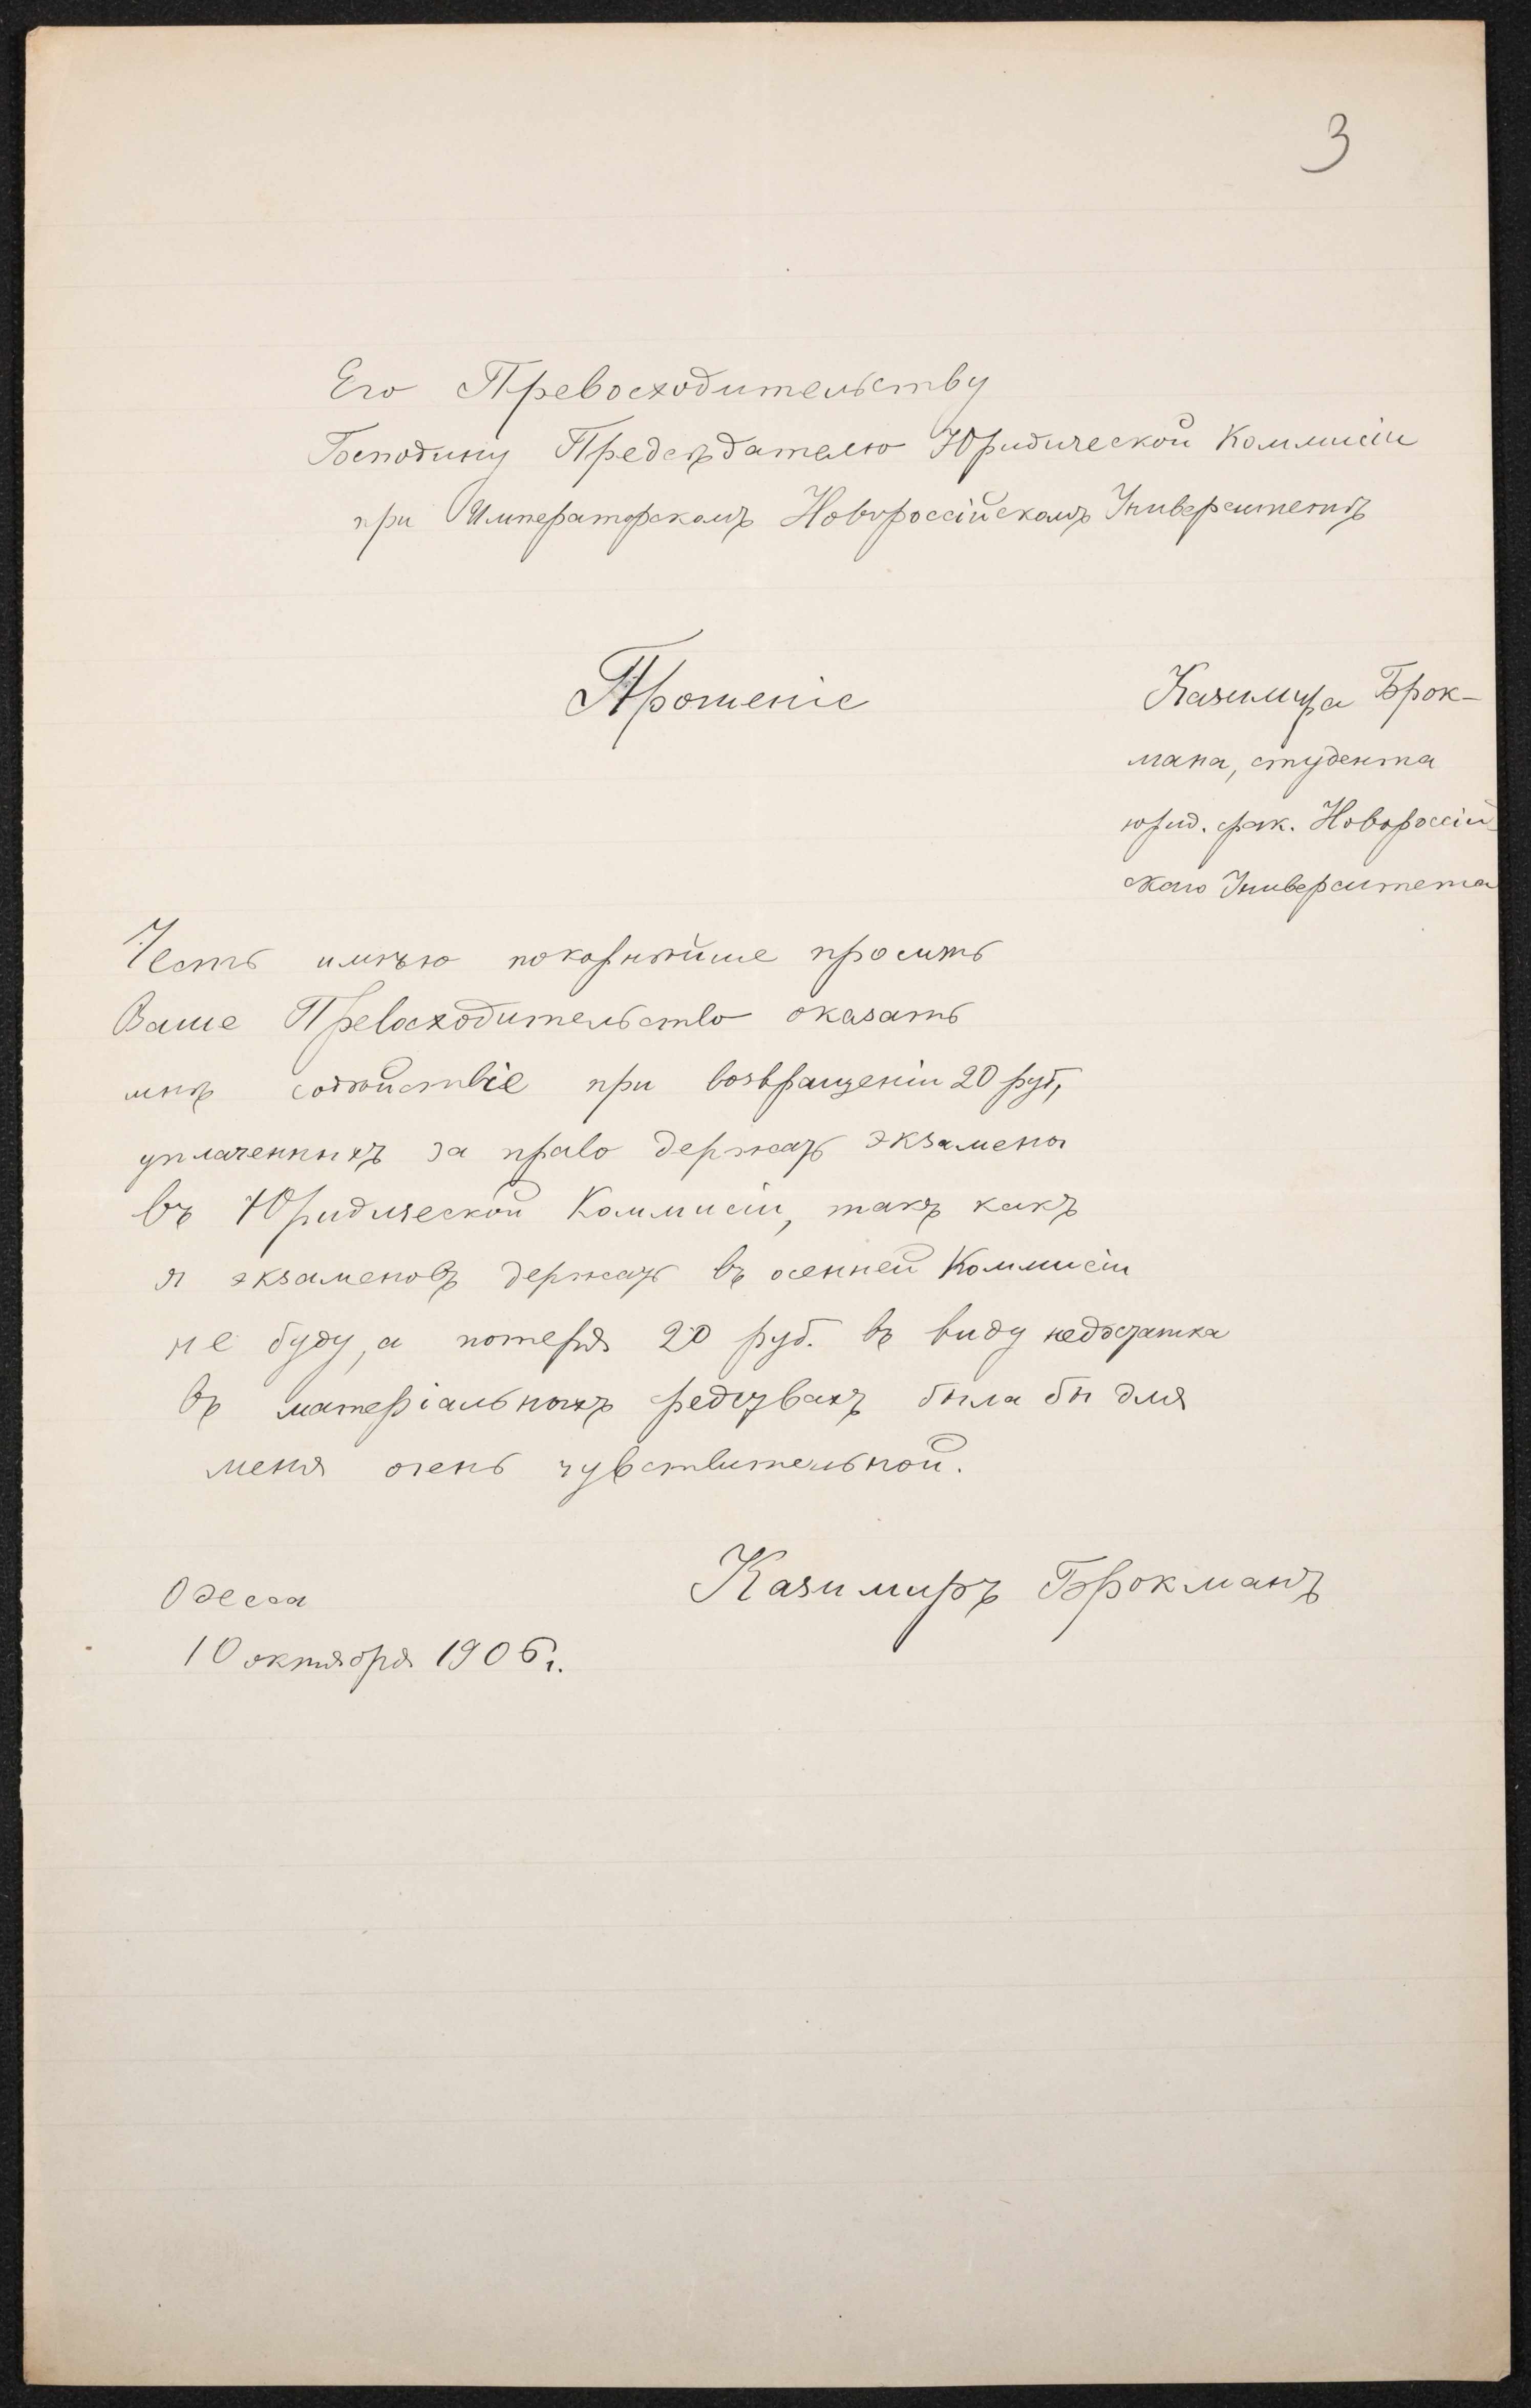 3
Его Превосходительству
Господину Предсѣдателю Юридической Коммисіи
при Императорскомъ Новороссійскомъ Университетѣ
Прошеніе
Казимира Брок-
мана, студента
юрид. фак. Новороссій
скаго Университета
Честь имѣю покорнѣйше просить
Ваше Превосходительство оказать
мнѣ содѣйствіе при возвращеніи 20 руб,
уплаченныхъ за право держать экзамены
въ Юридической Коммисіи, такъ какъ
я экзаменовъ держать въ осенней Коммисіи
не буду, а потеря 20 руб. въ виду недостатка
въ матеріальныхъ редствахъ была бы для
меня очень чувствительной.
Казимиръ Брокманъ
Одесса
10 октября 1906 г.